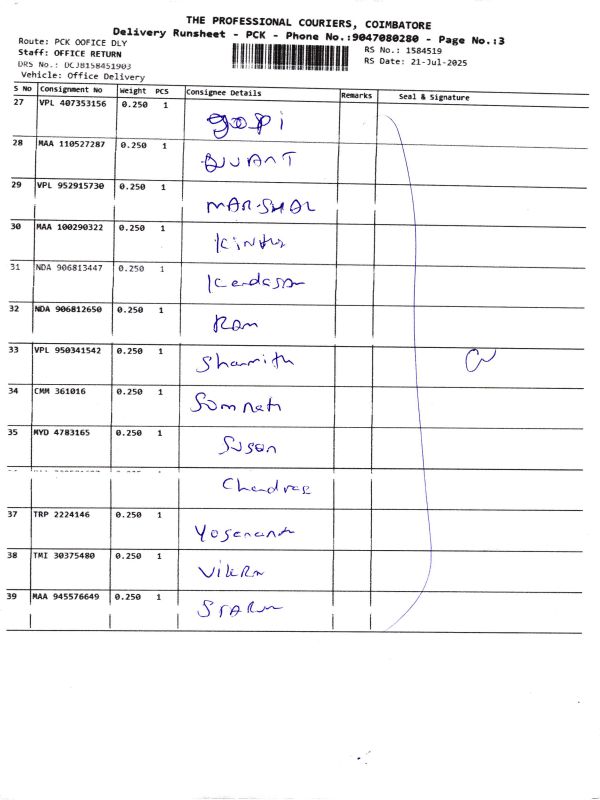 THE PROFESSIONAL COURIERS, COIMBATORE
Delivery Runsheet - PCK - Phone No.:9047080280 - Page No.:3
Route: PCK OOFICE DLY
Staff: OFFICE RETURN
DRS No.: DCJB158451903
Vehicle: Office Delivery
RS No.: 1584519
RS Date: 21-Jul-2025
S No Consignment No Weight PCS Consignee Details Remarks Seal & Signature
27 VPL 407353156 0.250 1 gopi
28 MAA 110527287 0.250 1
29 VPL 952915730 0.250 1 MARSHAL
30 MAA 100290322 0.250 1
31 NDA 906813447 0.250 1
32 NDA 906812650 0.250 1 Ram
33 VPL 950341542 0.250 1 Sharmith
34 CMM 361016 0.250 1 Somnath
35 MYD 4783165 0.250 1 Suson
37 TRP 2224146 0.250 1
38 TMI 30375480 0.250 1
39 MAA 945576649 0.250 1